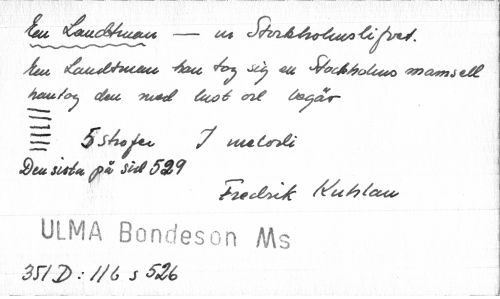 En Landtman — ur Stockholmslifvet.
En Landtman han tog sig en Stockholms mamsell
han tog den med lust och begär
5 strofer 1 melodi
Den sista på sid 529
Fredrik Kuhlau
ULMA Bondeson Ms
351 D : 116 s 526